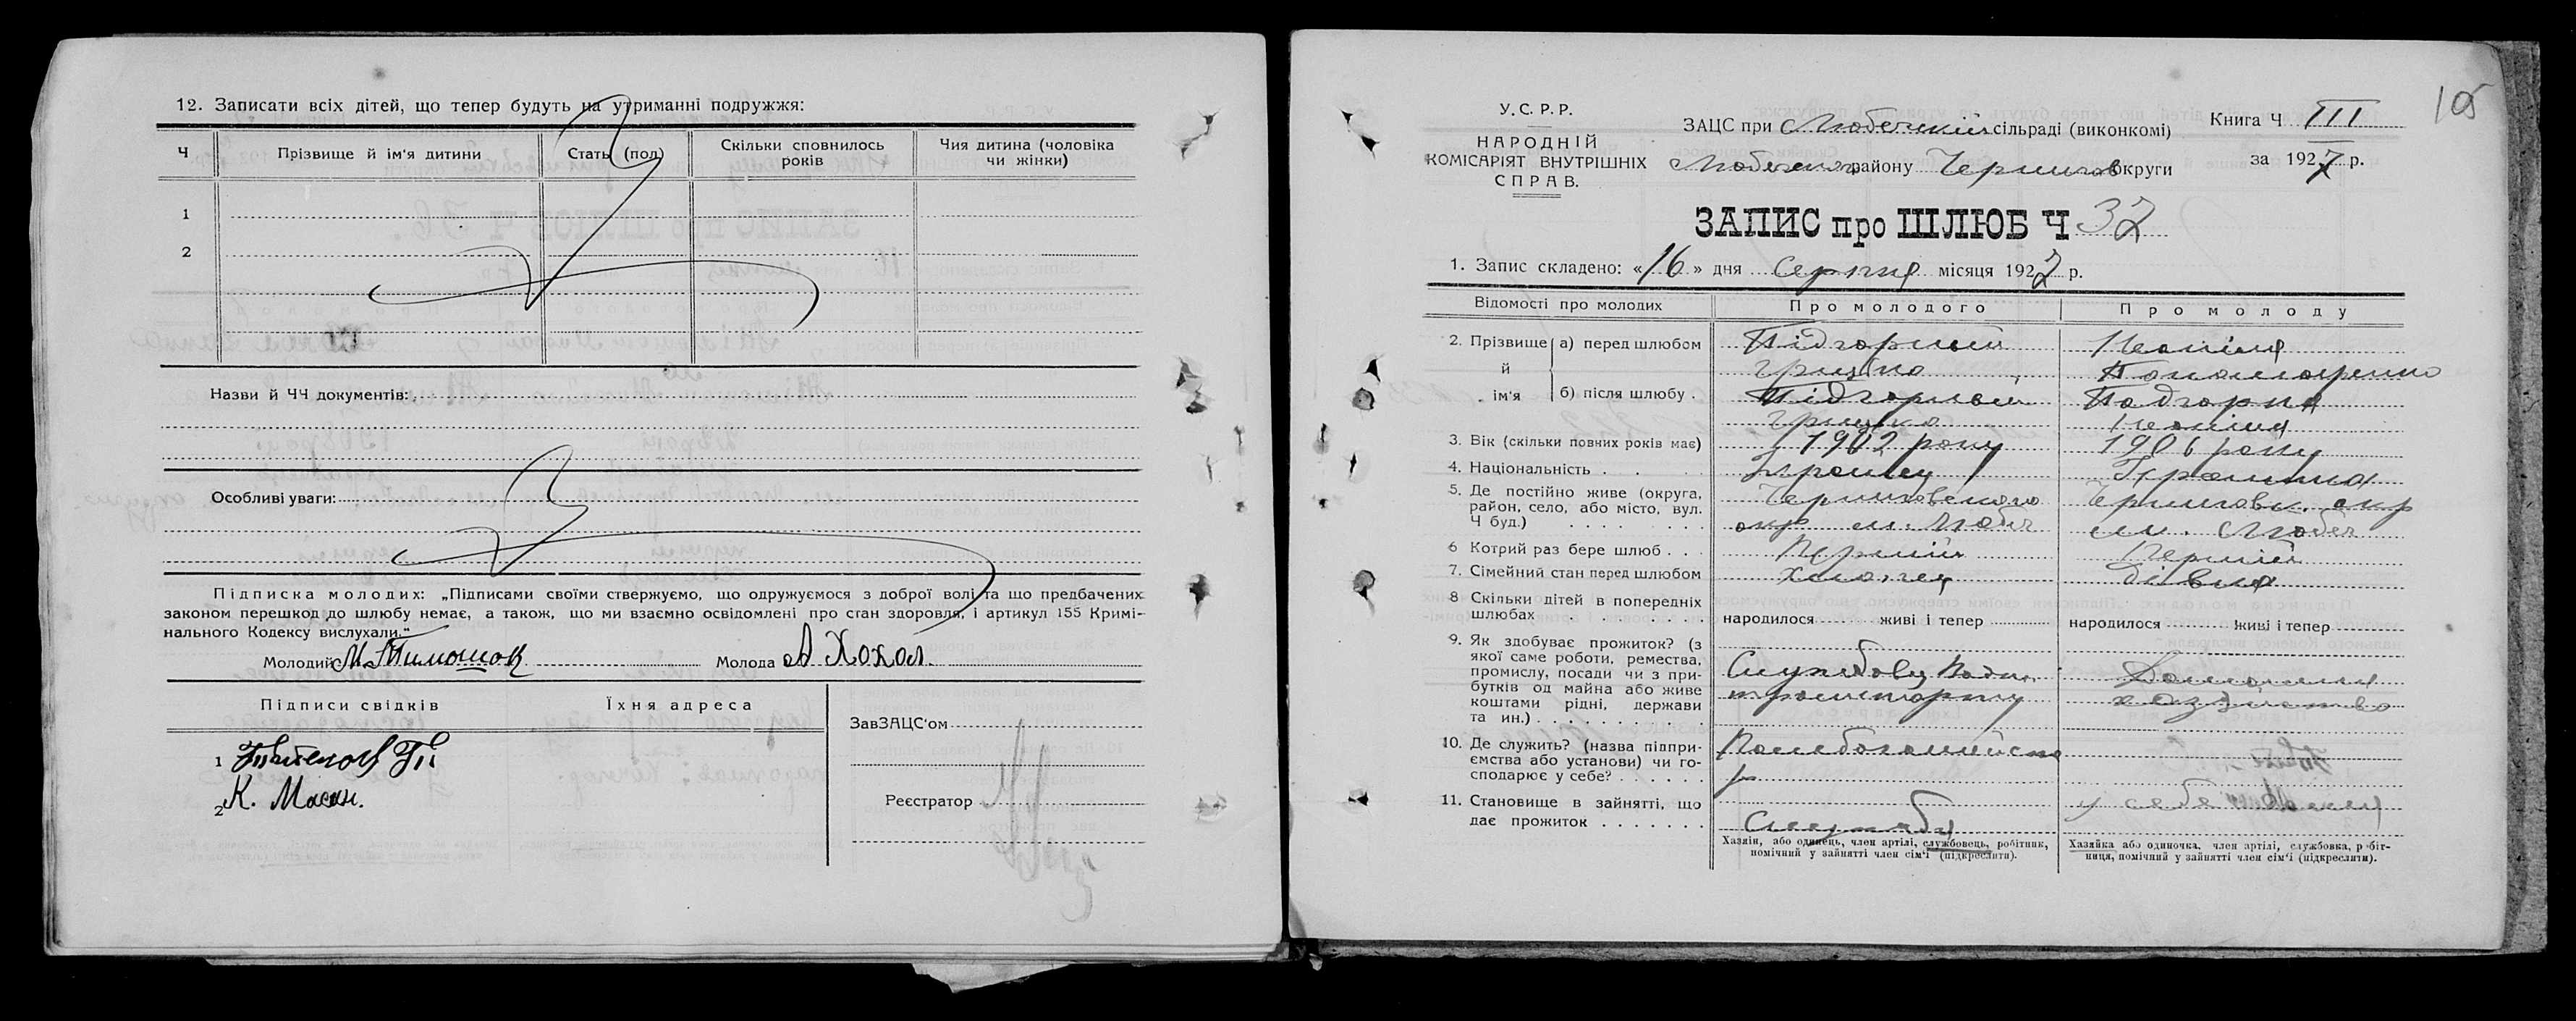 12. Записати всіх дітей, що тепер будуть на утриманні подружжя:
Ч
Прізвище й ім'я дитини
Стать (пол)
Скільки сповнилось років
Чия дитина (чоловіка чи жінки)
1
2
Назви й ЧЧ документів:
Особливі уваги:
Підписка молодих: „Підписами своїми ствержуємо, що одружуємося з доброї волі та що предбачених
законом перешкод до шлюбу немає, а також, що ми взаємно освідомлені про стан здоровля, і артикул 155 Кримі-
нального Кодексу вислухали.“
Молодий М. Тимошок Молода А Хохол.
Підписи свідків
Їхня адреса
1
2 К. Масан.
ЗавЗАЦС'ом
Реєстратор
105
У. С. Р. Р.
НАРОДНІЙ
КОМІСАРІЯТ ВНУТРІШНІХ
СПРАВ.
ЗАЦС при Любецкій сільраді (виконкомі)
Любецьк. району Чернигов округи
Книга Ч III
за 1927 р.
ЗАПИС про ШЛЮБ Ч 32
1. Запис складено: «16» дня Серпня місяця 1927 р.
Відомості про молодих
Про молодого
Про молоду
2. Прізвище й ім'я
а) перед шлюбом
Підгорный
Грицко
Пономаренко
б) після шлюбу .
Підгорный
Грицко
Подгорна
3. Вік (скільки повних років має)
1902 року
1906 року
4. Національність . . .
Украинец
Украинка
5. Де постійно живе (округа,
район, село, або місто, вул.
Ч буд.) . . . . . . .
Черниговского
окр м. Любеч
Черниговск. окр
м. Любеч
6 Котрий раз бере шлюб . . .
Перший
Перший
7. Сімейний стан перед шлюбом
Холостец
дівка
8 Скільки дітей в попередніх
шлюбах . . . . . . .
народилося живі і тепер
народилося живі і тепер
9. Як здобуває прожиток? (з
якої саме роботи, ремества,
промислу, посади чи з при-
бутків од майна або живе
коштами рідні, держави
та ин.) . . . . . . . .
Службовец Водн.
транспорту
Домашнее
хозяйство
10. Де служить? (назва підпри-
ємства або установи) чи го-
сподарює у себе? . . . . . .
11. Становище в зайнятті, що
дає прожиток . . . . . . .
у себе
Хазяїн, або одинець, член артілі, службовець, робітник,
помічний у зайнятті член сім'ї (підкреслити).
Хазяйка або одиночка, член артілі, службовка, робіт-
ниця, помічний у зайнятті член сім'ї (підкреслити).